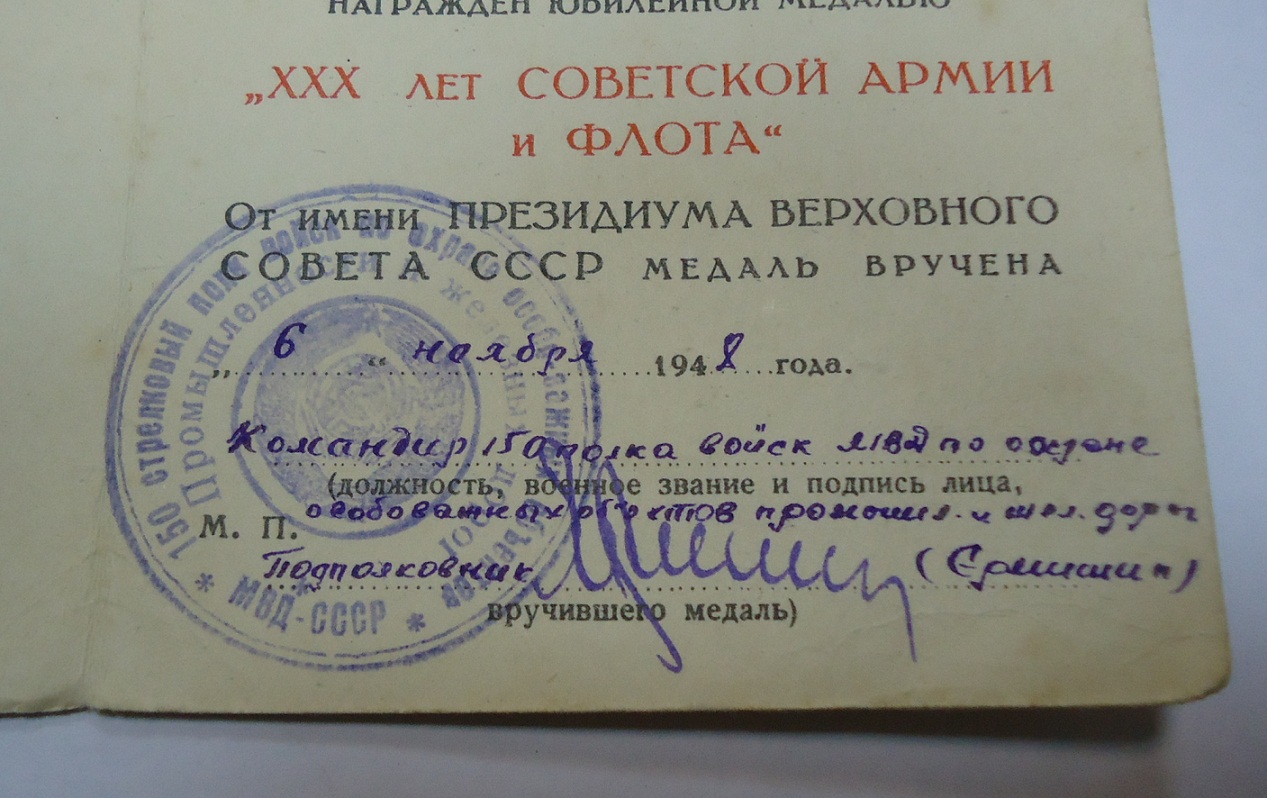 НАГРАЖДЕН ЮБИЛЕЙНОЙ МЕДАЛЬЮ
„XXX ЛЕТ СОВЕТСКОЙ АРМИИ
и ФЛОТА“
От имени ПРЕЗИДИУМА ВЕРХОВНОГО
СОВЕТА СССР МЕДАЛЬ ВРУЧЕНА
„6“ ноября 1948 года.
Командир 150 полка войск МВД по охране
(должность, военное звание и подпись лица,
объектов промышл. и жел. дорог
М. П.
Подполковник (Еришин)
вручившего медаль)
150 стрелковый полк войск по охране особо важных
Промышленности и железных дорог
* МВД-СССР *